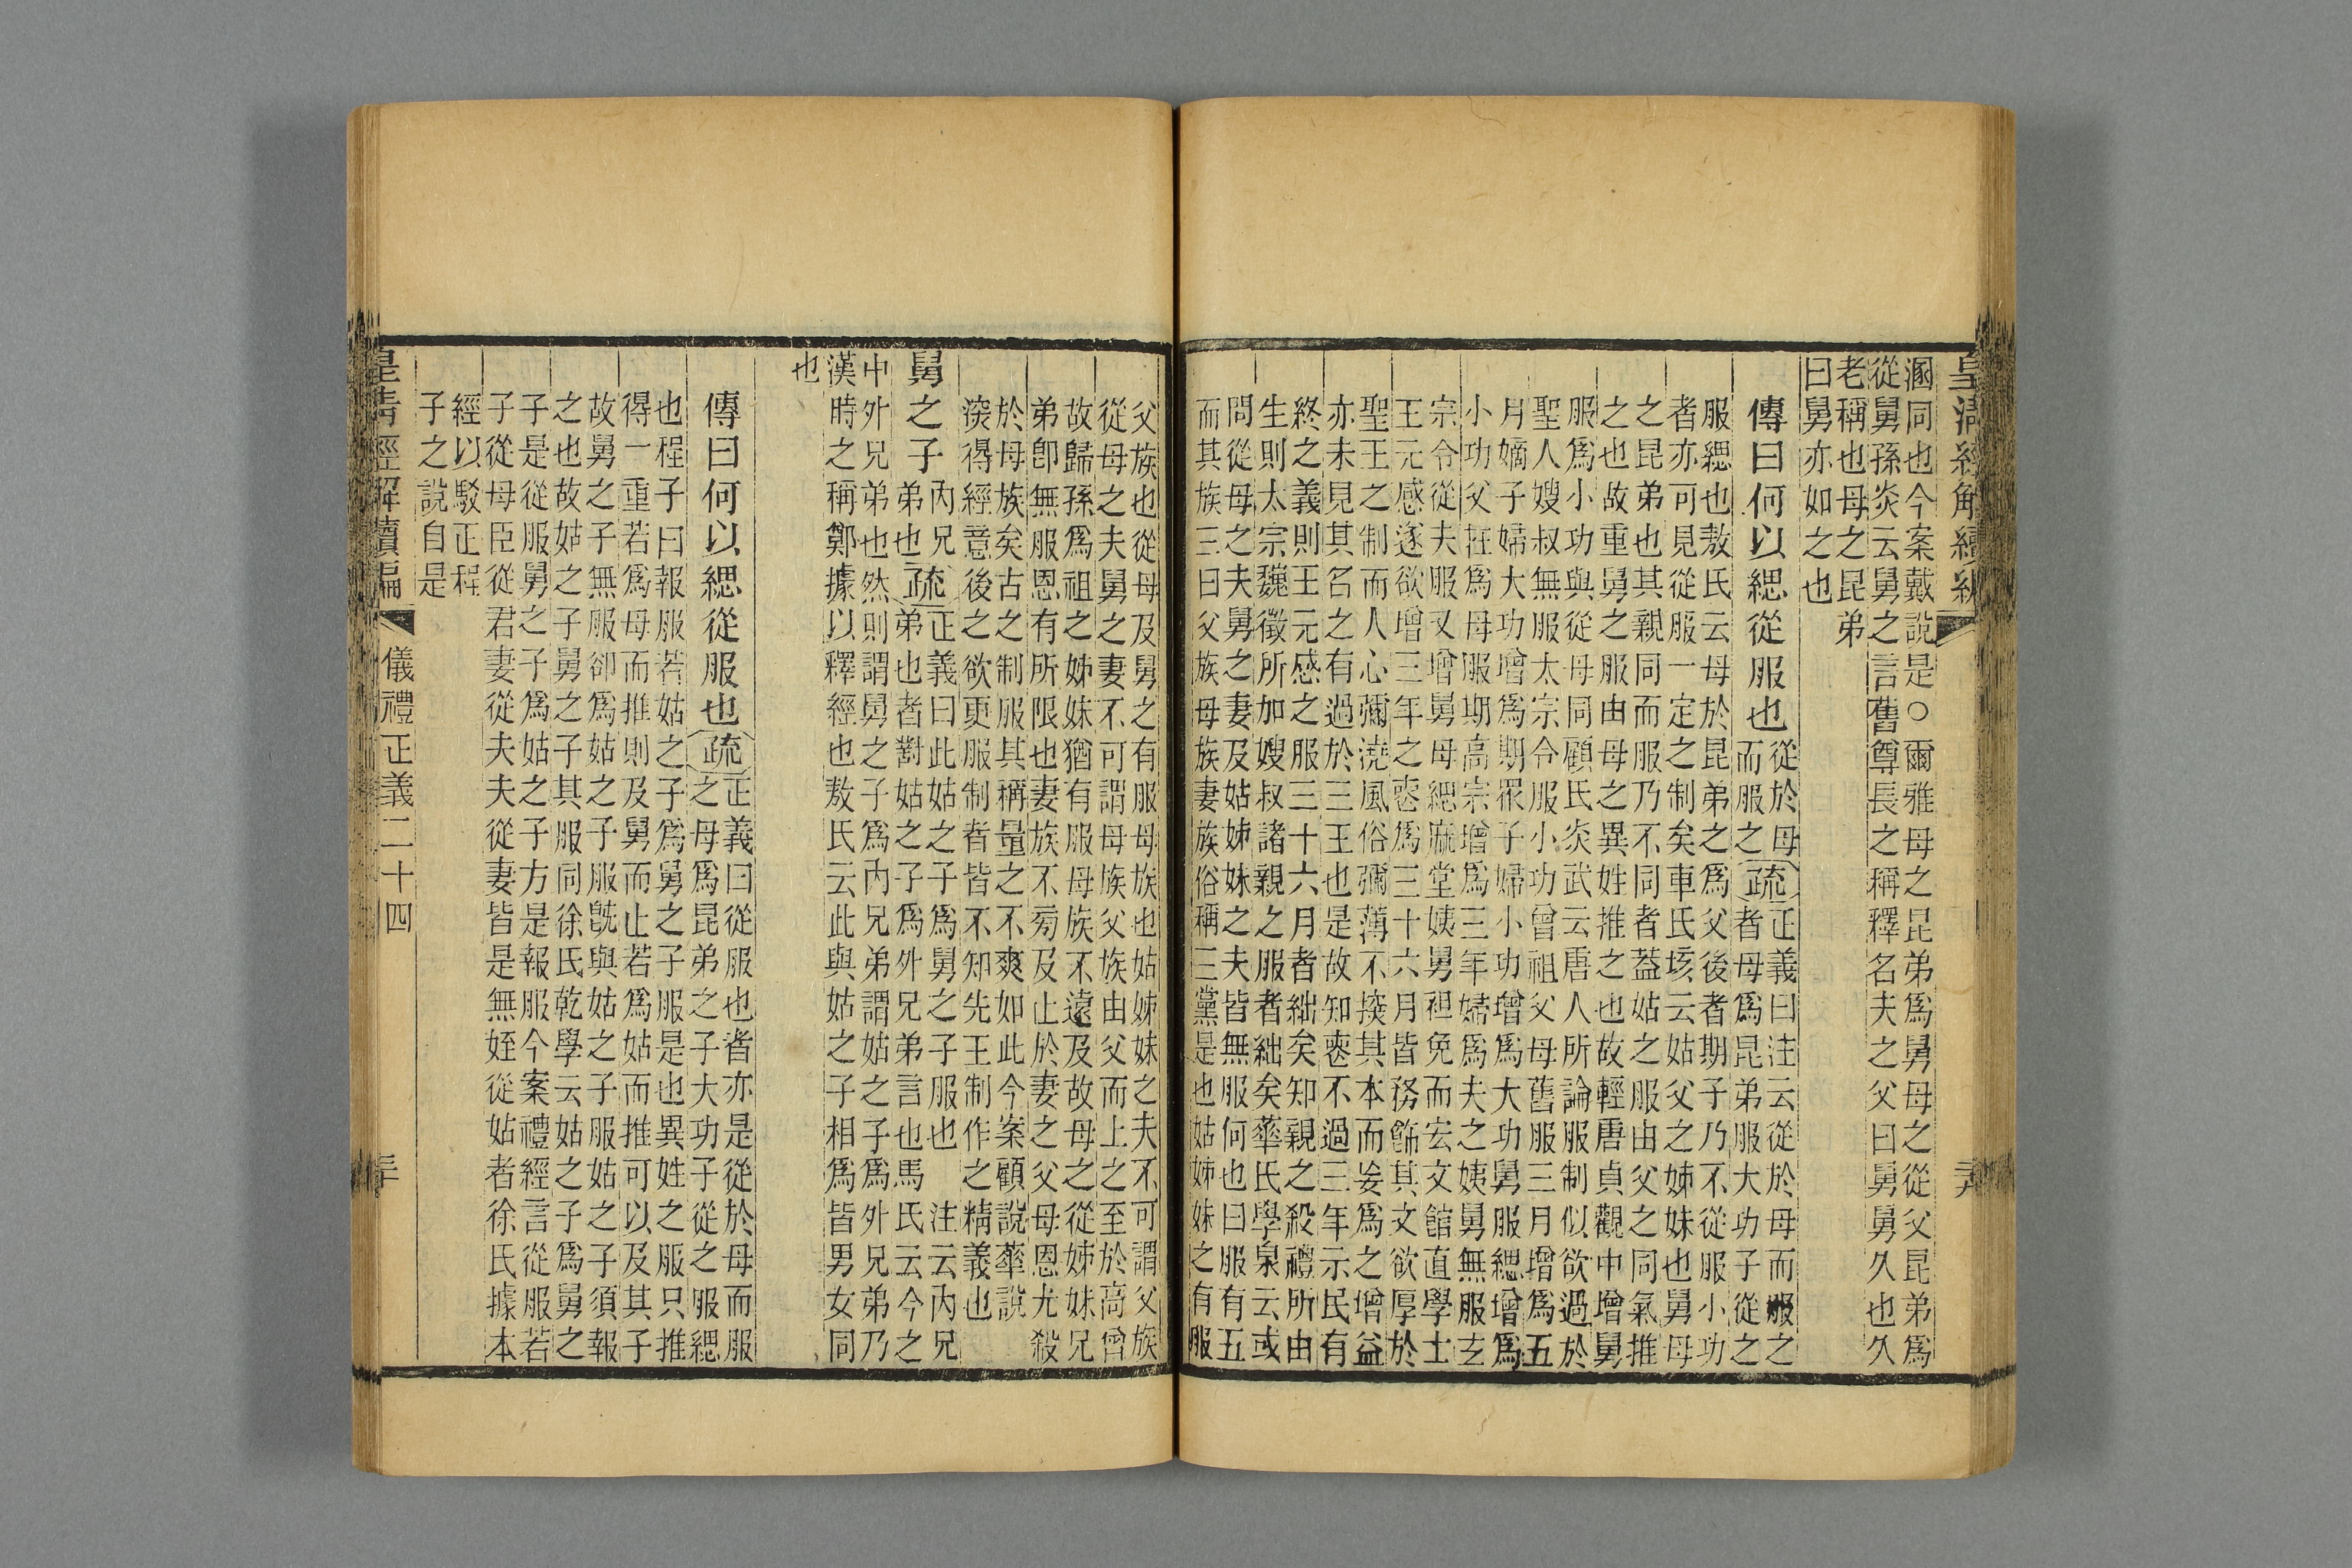 皇清經解續編
溷同也今案戴說是○爾雅母之昆弟爲舅母之從父昆弟爲
從舅孫炎云舅之言舊尊長之稱釋名夫之父曰舅舅久也久
老稱也母之昆弟
曰舅亦如之也
傳曰何以緦從服也
從於母
而服之
疏
正義曰注云從於母而服之
者母爲昆弟服大功子從之
服緦也敖氏云母於昆弟之爲父後者期子乃不從服小功
者亦可見從服一定之制矣車氏垓云姑父之姊妹也舅母
之昆弟也其親同而服乃不同者蓋姑之服由父之同氣推
之也故重舅之服由母之異姓推之也故輕唐貞觀中增舅
服爲小功與從母同顧氏炎武云唐人所論服制似欲過於
聖人嫂叔無服太宗令服小功曾祖父母舊服三月增爲五
月嫡子婦大功增爲期眾子婦小功增爲大功舅服緦增爲
小功父在爲母服期高宗增爲三年婦爲夫之姨舅無服玄
宗令從夫服又增舅母緦麻堂姨舅袒免而宏文館直學士
王元感遂欲增三年之喪爲三十六月皆務飾其文欲厚於
聖王之制而人心彌澆風俗彌薄不揆其本而妄爲之增益
亦未見其名之有過於三王也是故知喪不過三年示民有
終之義則王元感之服三十六月者絀矣知親之殺禮所由
生則太宗魏徵所加嫂叔諸親之服者絀矣華氏學泉云或
問從母之夫舅之妻及姑姊妹之夫皆無服何也曰服有五
而其族三曰父族母族妻族俗稱三黨是也姑姊妹之有服
父族也從母及舅之有服母族也姑姊妹之夫不可謂父族
從母之夫舅之妻不可謂母族父族由父而上之至於高曾
故歸孫爲祖之姊妹猶有服母族不遠及故母之從姊妹兄
弟卽無服恩有所限也妻族不菊及止於妻之父母恩尤殺
於母族矣古之制服其稱量之不爽如此今案顧說華說
湥得經意後之欲更服制者皆不知先王制作之精義也
舅之子
內兄
弟也
疏
正義曰此姑之子爲舅之子服也　注云內兄
弟也者對姑之子爲外兄弟言也馬氏云今之
中外兄弟也然則謂舅之子爲內兄弟謂姑之子爲外兄弟乃
漢時之稱鄭據以釋經也敖氏云此與姑之子相爲皆男女同
也
傳曰何以緦從服也
疏
正義曰從服也者亦是從於母而服
之母爲昆弟之子大功子從之服緦
也程子曰報服若姑之子爲舅之子服是也異姓之服只推
得一重若爲母而推則及舅而止若爲姑而推可以及其子
故舅之子無服卻爲姑之子服旣與姑之子服姑之子須報
之也故姑之子舅之子其服同徐氏乾學云姑之子爲舅之
子是從服舅之子爲姑之子方是報服今案禮經言從服若
子從母臣從君妻從夫夫從妻皆是無姪從姑者徐氏據本
經以駁正程
子之說自是
皇清經解續編
儀禮正義二十四